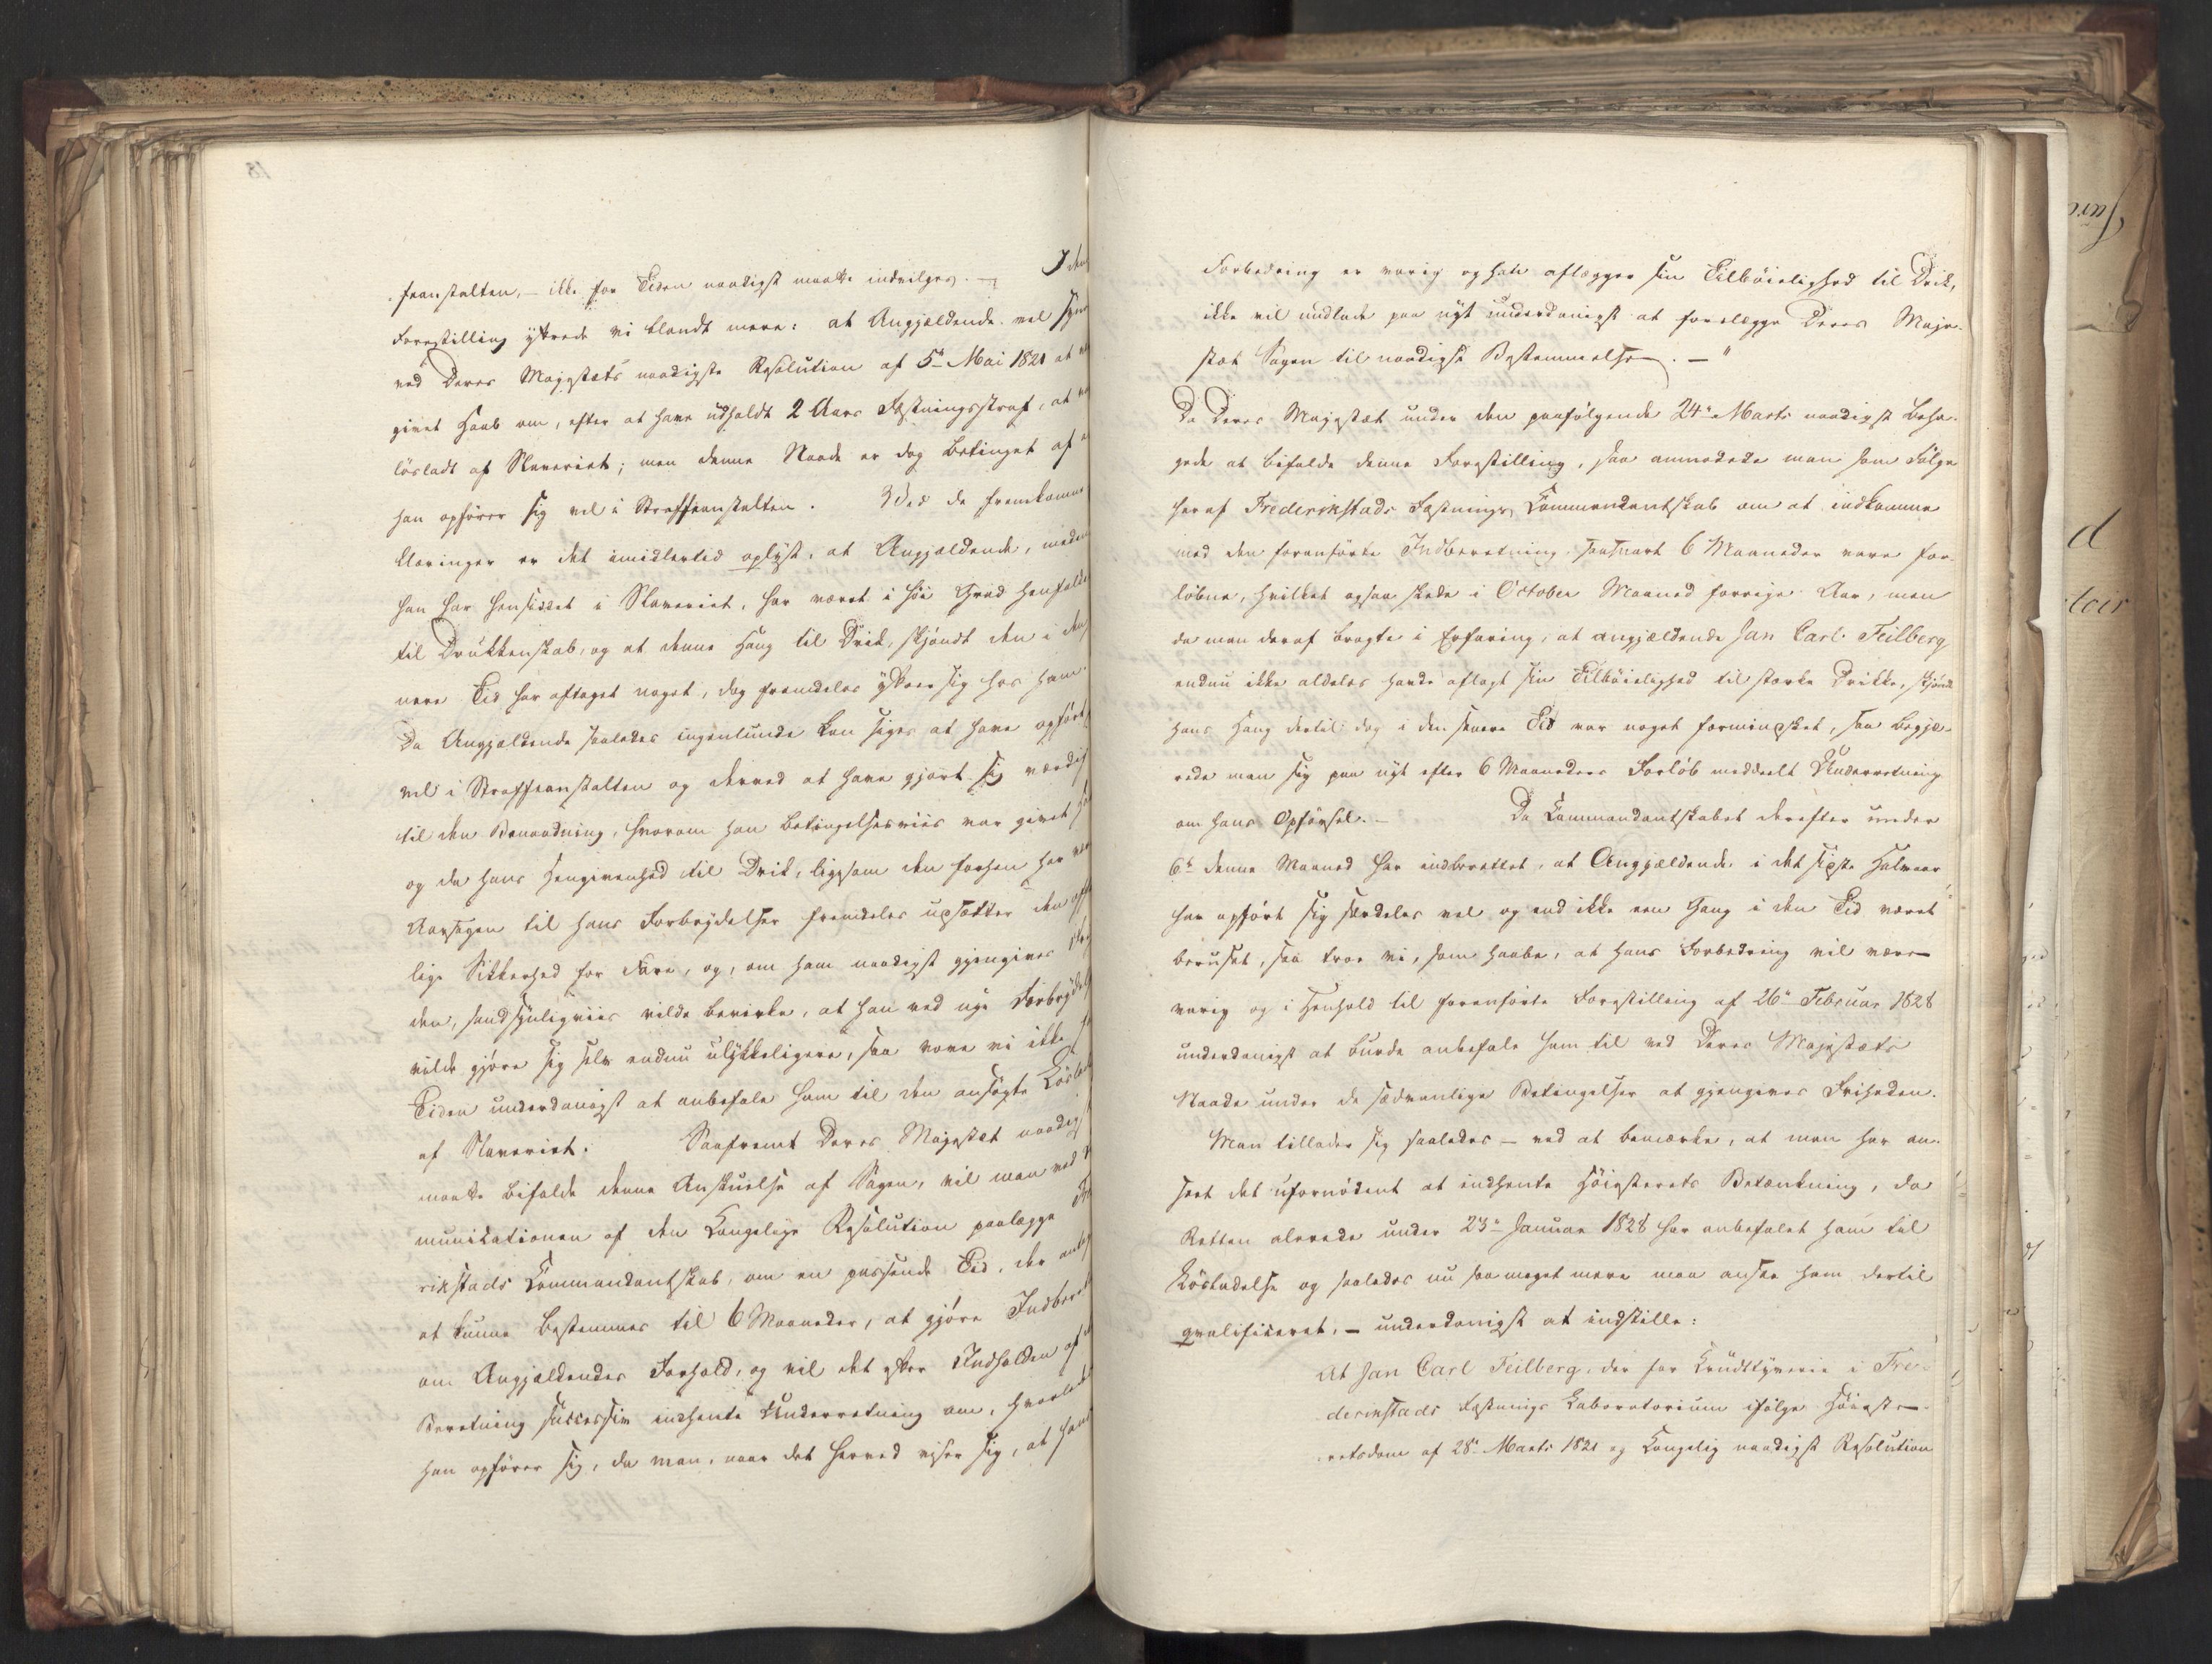 feanstalten, – ikke for Tiden naadigst maatte indvilges. – I den
Forestilling yttrede vi blandt mere: at Angjældende vel
ved Deres Majestæts naadigste Resolution af 5te Mai 1821 at
givet Haab om, efter at have udholdt 2 Aars Fæstningsstraf, at
lösladt af Slaveriet; men denne Naade er dog betinget af
han opförer sig vel i Straffeanstalten. Ved de fremkomne
klæringer er det imidlertid oplyst, at Angjældende, meden
han har hensiddet i Slaveriet, har været i höi Grad henfalde
til Drukkenskab, og at denne Hang til Drik, skjöndt den i den
nere Tid har aftaget noget, dog fremdeles yttrer sig hos ham.
Da Angjældende saaledes ingenlunde kan siges at have opfört
vel i Straffeanstalten og derved at have gjort sig værdig
til den Benaadning, hvorom han betingelsesviis var givet
og da hans Hengivenhed til Drik, ligesom den forhen har
Aarsagen til hans Forbrydelser fremdeles udsætter den off
lige Sikkerhed for Fare, og, om ham naadigst gjengives
den, sandsynligviis vilde bevirke, at han ved nye Forbrydel
vilde gjöre sig selv endnu ulykkeligere, saa vove vi ikke
Tiden underdanigst at anbefale ham til den ansögte Löslad
af Slaveriet. Saafremt Deres Majestæt naadigst
maatte bifalde denne Anskuelse af Sagen, vil man ved
munikationen af den Kongelige Resolution paalægge
rikstads Kommandantskab, om en passende Tid, der
at kunne bestemmes til 6 Maaneder, at gjöre Indberet
om Angjældendes Forhold, og vil det efter Indholden af
Beretning successiv indhente Underretning om, hvorlede
han opförer sig, da man, naar det herved viser sig, at hans
Forbedring er varig og han aflægger sin Tilböielighed til Drik,
ikke vil undlade paa nyt underdanigst at forelægge Deres Maje-
stæt Sagen til naadigste Bestemmelse. – "
Da Deres Majestæt under den paafölgende 24de Marts naadigst beha-
gede at bifalde denne Forestilling, saa anmodede man som Fölge
heraf Frederikstads Fæstnings Kommandantskab om at indkomme
med den foranförte Indberetning saasnart 6 Maaneder vare for-
löbne, hvilket ogsaa skede i October Maaned forrige Aar, men
da man deraf bragte i Erfaring, at angjældende Jan Carl Feilberg
endnu ikke aldeles havde aflagt sin Tilböielighed til stærke Drikke, skjöndt
hans Hang dertil dog i den senere Tid var noget formindsket, saa begjæ-
rede man sig paa nyt efter 6 Maaneders Forlöb meddeelt Underretning
om hans Opförsel. – Da Kommandantskabet derefter under
6te denne Maaned har indberettet, at Angjældende i det sidste Halvaar
har opfört sig særdeles vel og end ikke een Gang i den Tid været
beruset, saa troe vi, som haabe, at hans Forbedring vil være
varig og i Henhold til foranförte Forestilling af 26de Februar 1828
underdanigst at burde anbefale ham til ved Deres Majestæts
Naade under de sædvanlige Betingelser at gjengives Friheden.
Man tillader sig saaledes – ved at bemærke, at man har an-
seet det ufornödent at indhente Höiesterets Betænkning, da
Retten allerede under 23de Januar 1828 har anbefalet ham til
Lösladelse og saaledes nu saa meget mere maa ansee ham dertil
qvalificeret, – underdanigst at indstille:
At Jan Carl Feilberg, der for Krudttyverie i Fre-
derikstads Fæstnings Laboratorium ifölge Höieste-
retsdom af 28de Marts 1821 og Kongelig naadigst Resolution